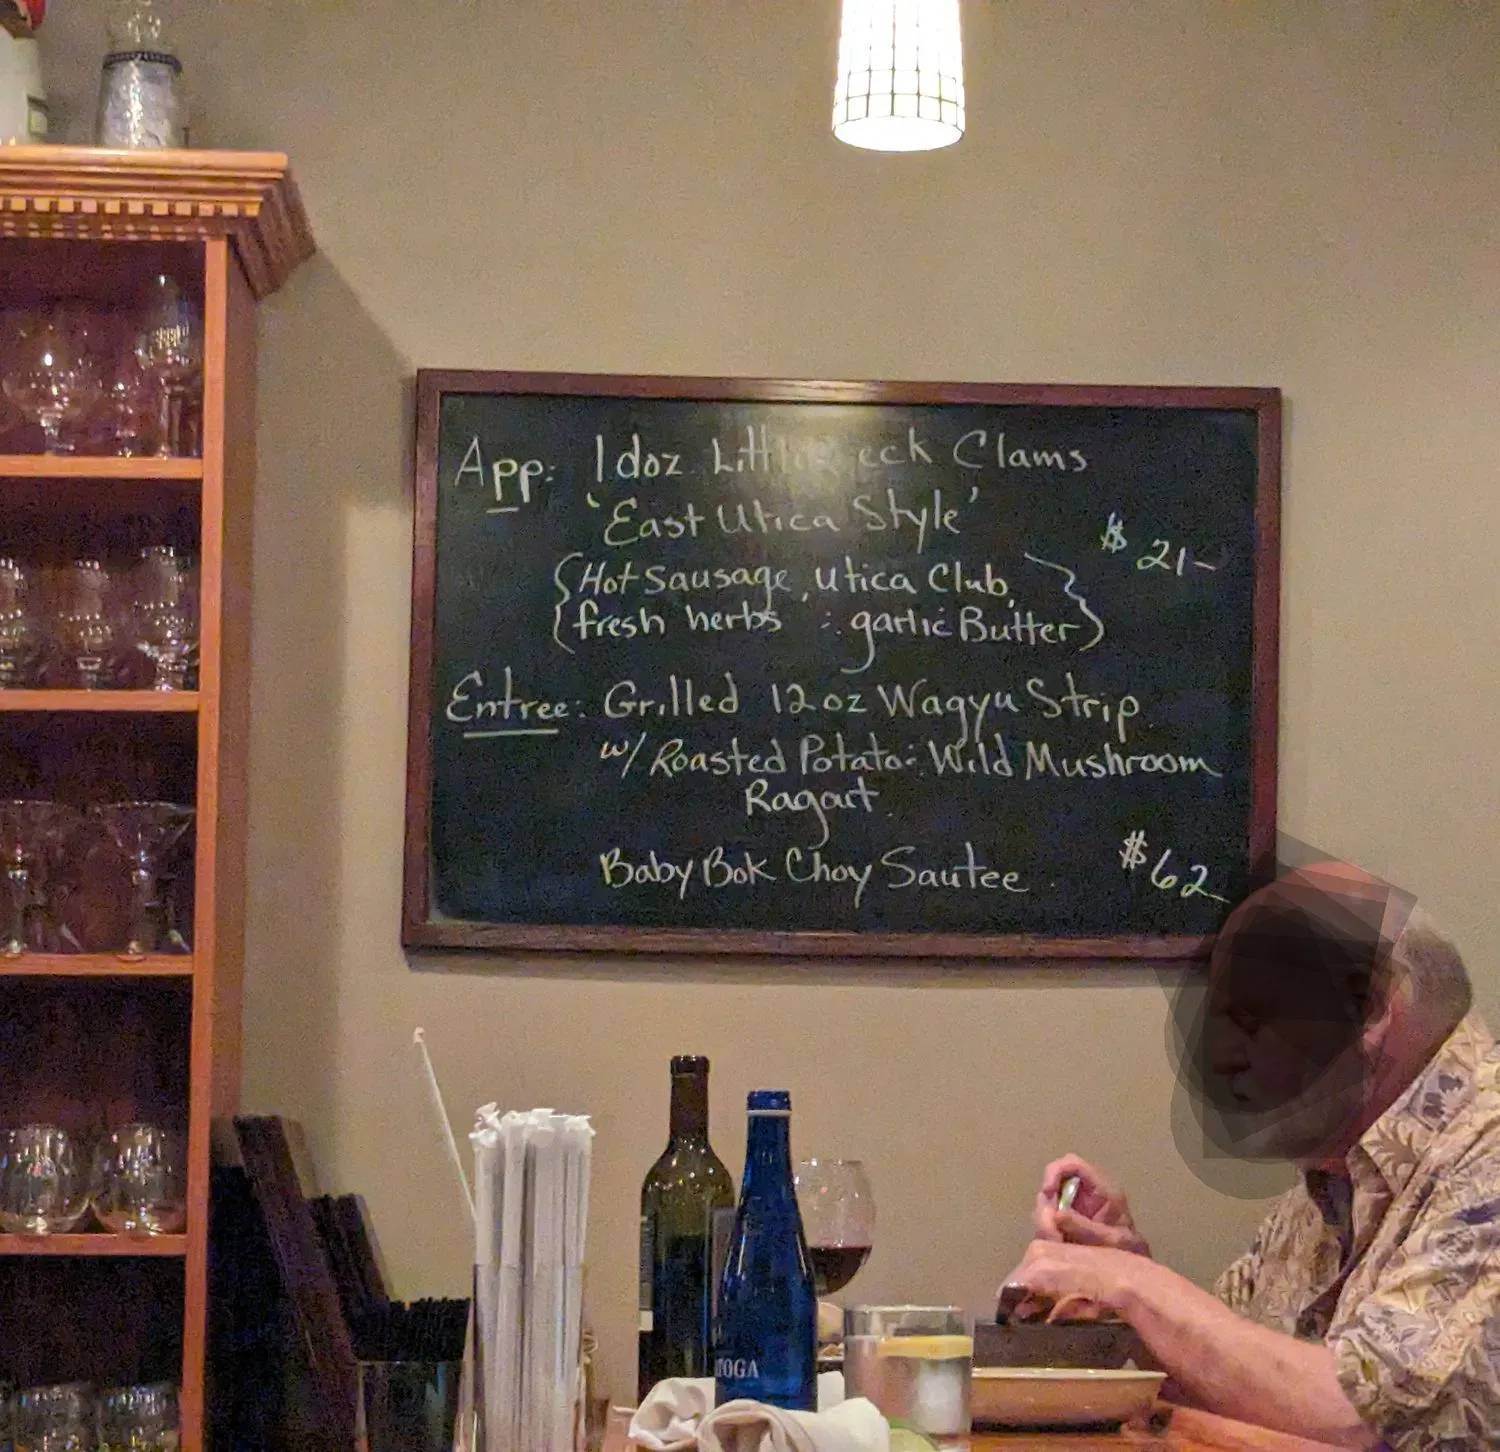 App: 1 doz Littleneck Clams
'East Utica Style'
$ 21-
{Hot Sausage, Utica Club,
fresh herbs : garlic Butter}
Entree: Grilled 12oz Wagyu Strip
w/ Roasted Potato : Wild Mushroom
Ragout
Baby Bok Choy Sautee
$62
TOGA